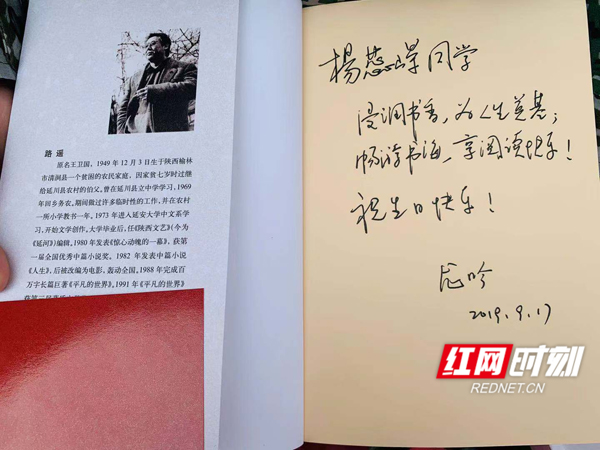 路 遥
原名王卫国，1949 年 12 月 3 日生于陕西榆林
市清涧县一个贫困的农民家庭，因家贫七岁时过继
给延川县农村的伯父，曾在延川县立中学学习，1969
年回乡务农，期间做过许多临时性的工作，并在农村
一所小学教书一年，1973 年进入延安大学中文系学
习，开始文学创作。大学毕业后，任《陕西文艺》（今为
《延河》）编辑。1980 年发表《惊心动魄的一幕》，获第
一届全国优秀中篇小说奖。1982 年发表中篇小说
《人生》，后被改编为电影，轰动全国。1988 年完成百
万字长篇巨著《平凡的世界》，1991 年《平凡的世界》
杨 同学
浸润书香，为人生奠基；
畅游书海，享阅读快乐！
祝生日快乐！
2019.9.17
红网时刻
REDNET.CN